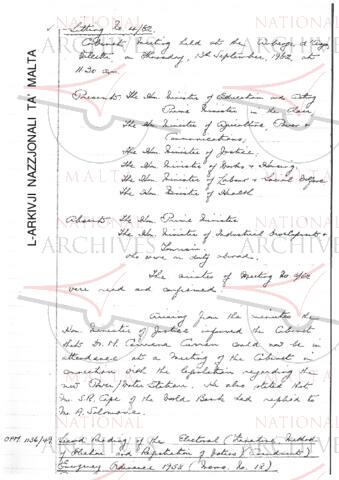 L-ARKIVJI NAZZJONALI TA' MALTA
Sitting No. 4/62
Cabinet Meeting held at the Auberge d'
Valletta on Thursday, 13th September, 1962 at
11.30 am.
Present: The Hon. Minister of Education and Acting
Prime Minister in the Chair
The Hon. Minister of Agriculture, Power &
Communications
The Hon. Minister of Justice
The Hon. Minister of Works & Housing
The Hon. Minister of Labour & Social Welfare
The Hon. Minister of Health
Absent: The Hon. Prime Minister
The Hon. Minister of Industrial Development &
Tourism
who were on duty abroad.
The minutes of Meeting No 3/62
were read and confirmed.
Arising from the minutes the
Hon. Minister of Justice informed the Cabinet
that Dr. could now be in
attendance at a meeting of the Cabinet in
connection with the legislation regarding the
new Power/Water Station. He also stated that
Mr. S.R. Cope of the World Bank had replied to
Mr. A. Salomone.
OPM 1136/49 Second Reading of the Electoral (Transitory Method
of Election and Registration of Voters) (Amendment)
Emergency Ordinance 1958 (Memo. No. 18)
NATIONAL
ARCHIVES
MALTA